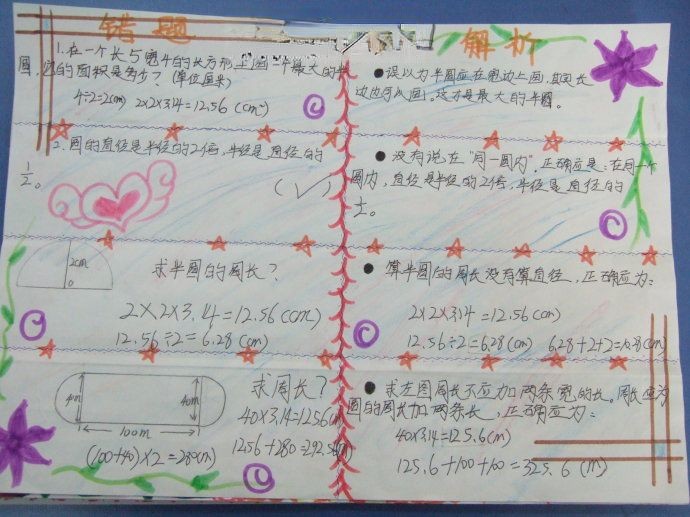 错题
1.在一个长5宽4的长方形上画一个最大的半
圆,它的面积是多少?(单位厘米)
4÷2=2(cm) 2×2×3.14=12.56(cm)
2.圆的直径是半径的2倍,半径是直径的
1/2。
(✓)
2cm
0
求半圆的周长?
2×2×3.14=12.56(cm)
12.56÷2=6.28(cm)
40m
40m
100m
求周长?
40×3.14=125.6(m)
(100+40)×2=280(m)
125.6+280=292.56(m)
解析
误以为半圆应在宽边上画,其实长
边也可以画。这才是最大的半圆。
没有说在"同一圆内",正确应是:在同一个
圆内,直径是半径的2倍,半径是直径的
1/2。
算半圆的周长没有算直径,正确应为:
2×2×3.14=12.56(cm)
12.56÷2=6.28(cm) 6.28+2+2=10.28(cm)
求左图周长不应加两条宽的长。周长应为
圆的周长加两条长,正确应为:
40×3.14=125.6(m)
125.6+100+100=325.6(m)